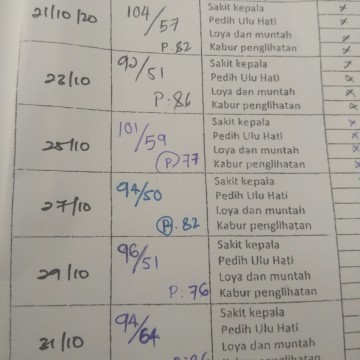 21/10/20 104/57 Sakit kepala x
Pedih Ulu Hati x
Loya dan muntah x
P. 82 Kabur penglihatan x
22/10 90/51 Sakit kepala x
Pedih Ulu Hati x
Loya dan muntah x
P: 86 Kabur penglihatan x
25/10 101/59 Sakit kepala x
Pedih Ulu Hati x
Loya dan muntah x
P 77 Kabur penglihatan x
27/10 94/50 Sakit kepala
Pedih Ulu Hati
Loya dan muntah
P. 82 Kabur penglihatan
29/10 96/51 Sakit kepala
Pedih Ulu Hati
Loya dan muntah
P: 76 Kabur penglihatan
31/10 94/64 Sakit kepala
Pedih Ulu Hati
Loya dan muntah